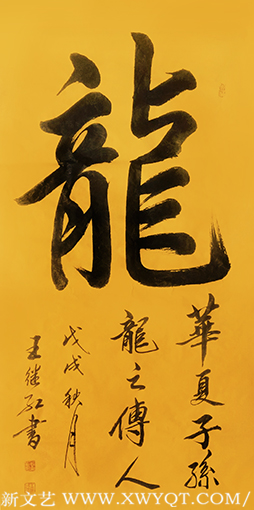 龍
華夏子孫
龍之傳人
戊戌秋月
王继红書
新文艺 WWW.XWYQT.COM/